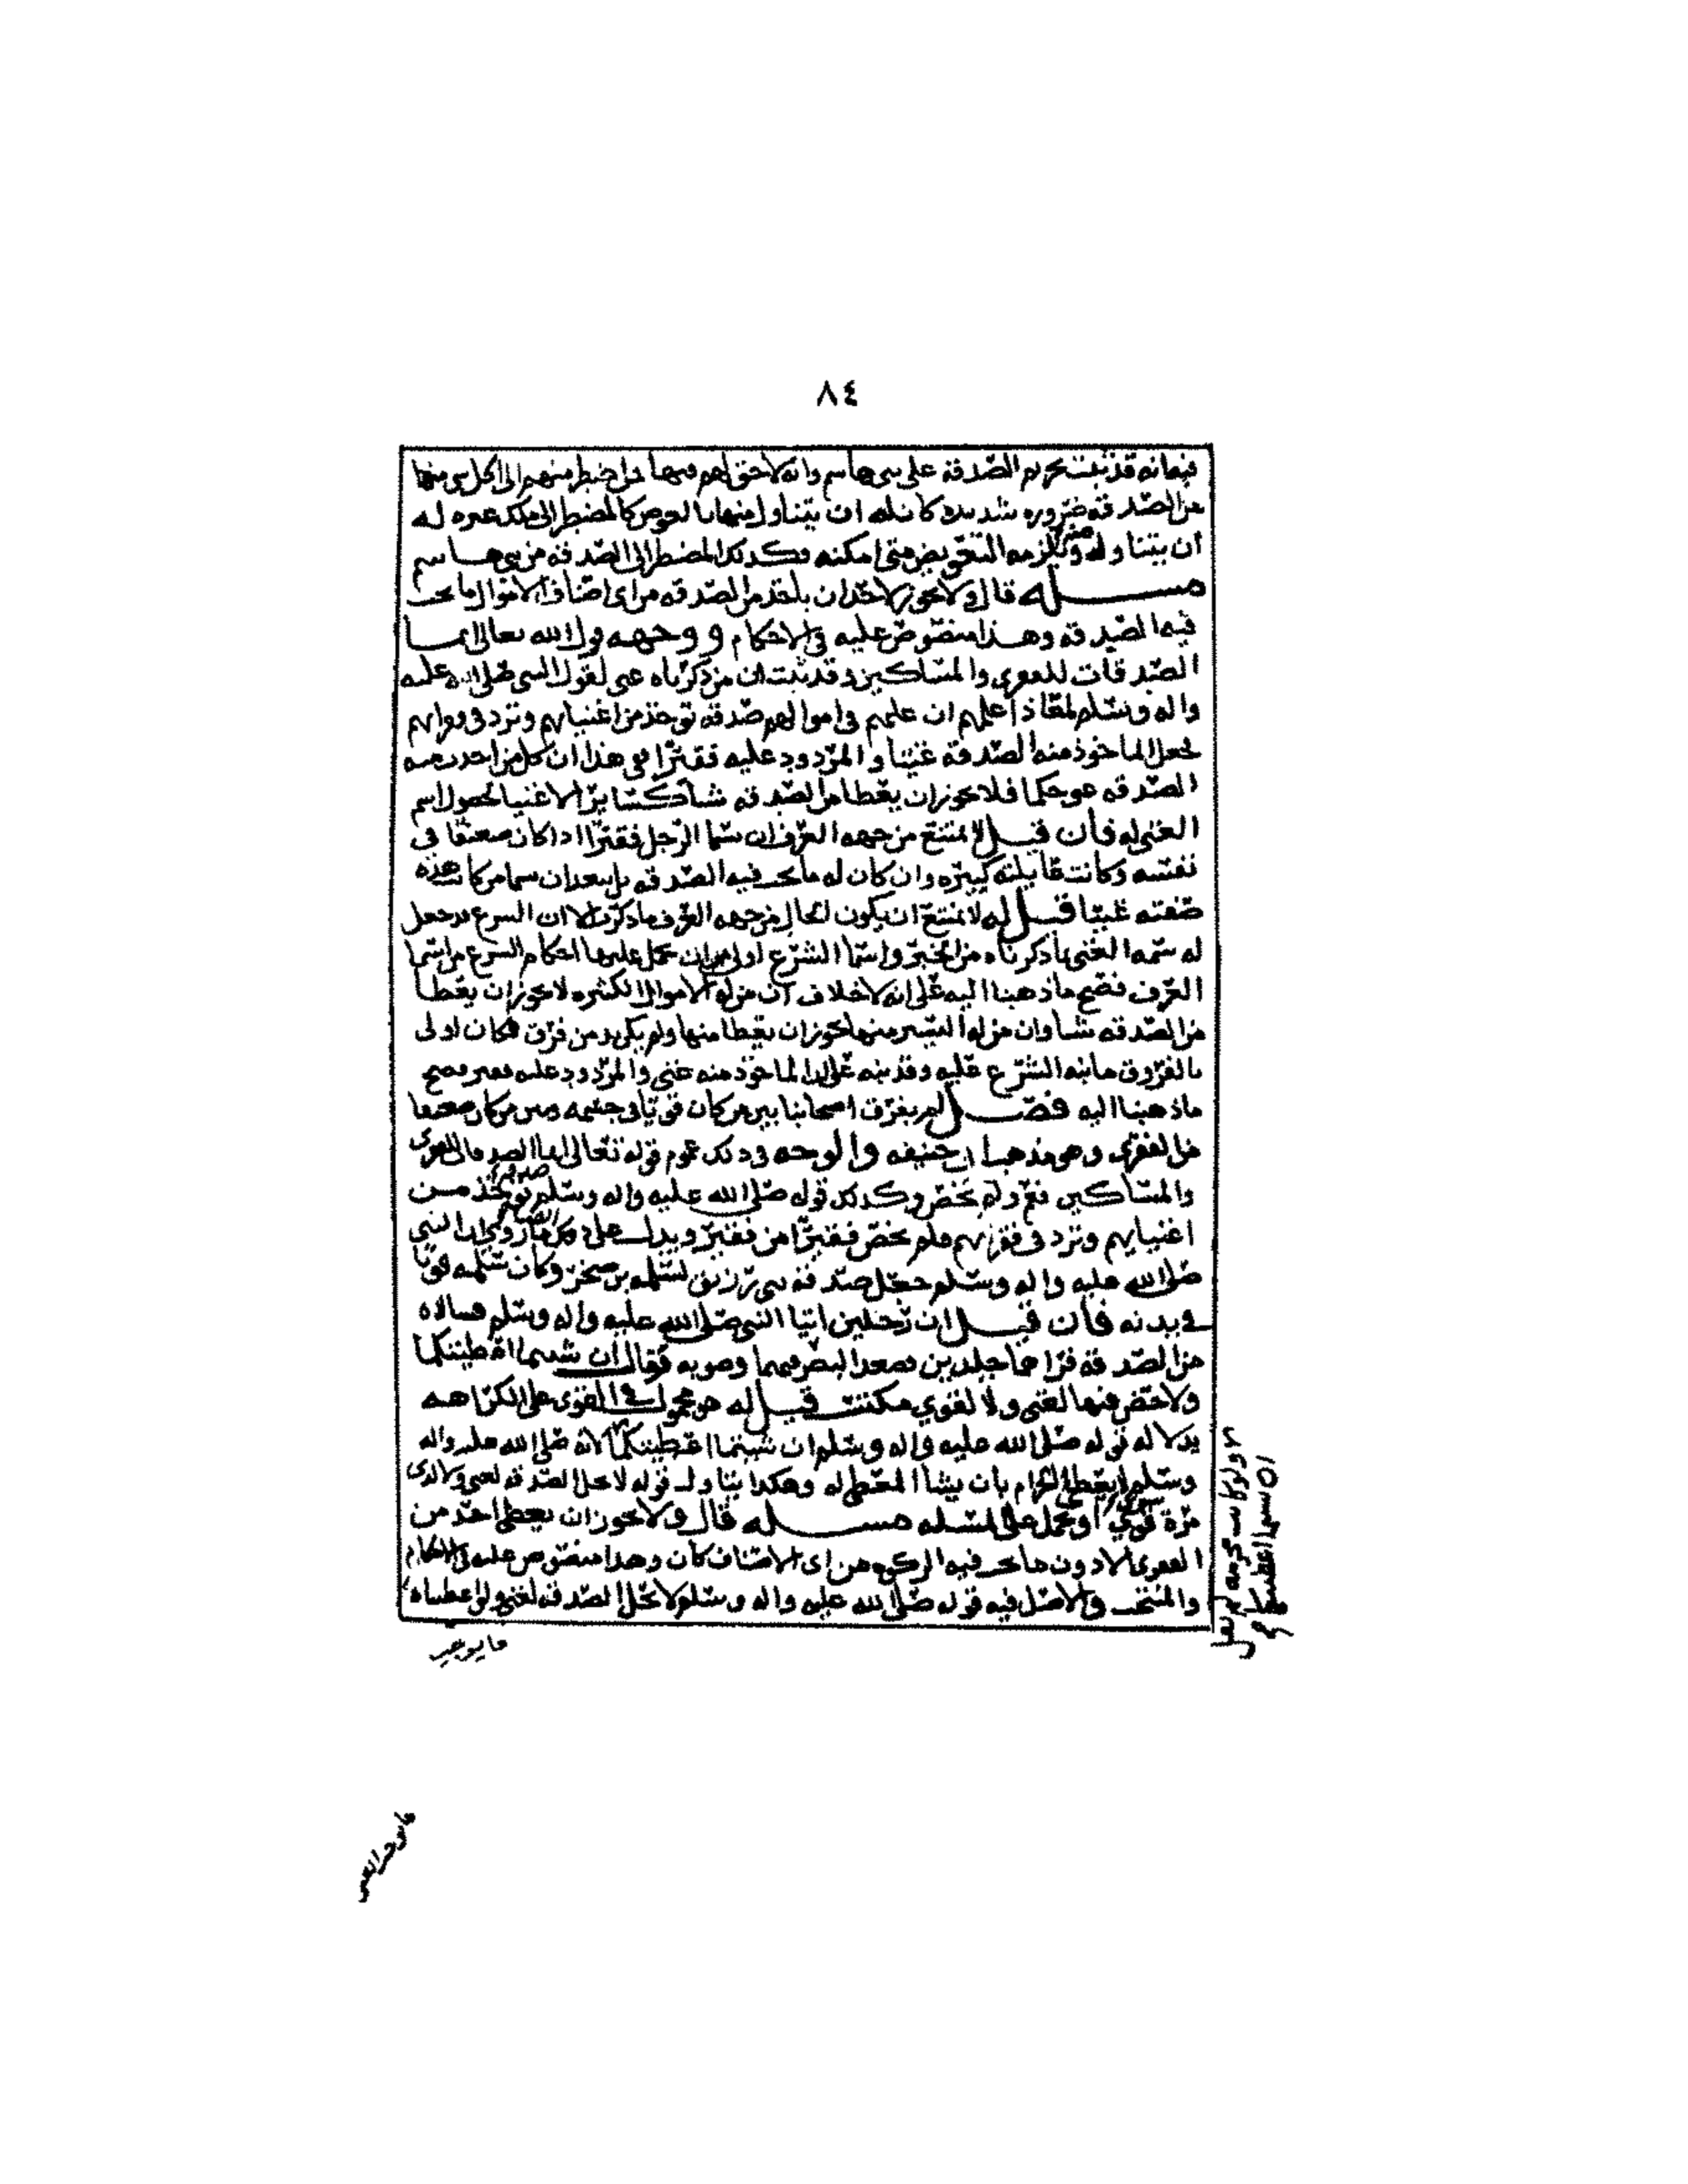 ٨٤
فيها انه قد ثبت تحريم الصدقة على بني هاشم وانه لا حق لهم فيها فمن اضطر منهم الى اكل شي منها
من الصدقه ضروره شديده كان له ان يتناول منها بالعوض كالمضطر الى ملك غيره له
ان يتناوله ويلزمه التعويض متى امكنه فكذلك المضطر الى الصدقه من بني هاشم
مسله قال ولا يجوز لاحد ان ياخذ من الصدقه من اي اصناف الاموال ما تجب
فيه الصدقه وهذا منصوص عليه في الاحكام ووجهه قول الله تعالى انما
الصدقات للفقرى والمساكين وقد ثبت ان من ذكرناه غني لقول النبي صلى الله عليه
واله وسلم لمعاذ اعلمهم ان عليهم في اموالهم صدقه توخذ من اغنيايهم وترد في فقرايهم
فجعل الماخوذ منه الصدقة غنيا والمردود عليه فقيرا فعلى هذا ان كل من اخذت منه
الصدقه هو حكما فلا يجوز ان يعطا من الصدقه شيا كسايرالاغنيا لحصول اسم
الغنى له فان قيل لا يمتنع من جهه العرف ان يسما الرجل فقيرا اذا كان ضعيفا في
نفسه وكانت عايلته كبيره وان كان له ما تجب فيه الصدقه بل يبعد ان يسما من كانت هذه
صفته غنيا قيل له لا يمتنع ان يكون الحال من جهه العرف ما ذكرت الا ان الشرع قد جعل
له سمه الغنى بما ذكرناه من الخبر واسما الشرع اولى من ان تحمل عليها احكام الشرع من اسما
العرف فصح ما ذهبنا اليه على انه لا خلاف ان من له الاموال الكثيره لا يجوز ان يعطا
من الصدقه شيا وان من له اليسير منها يجوز ان يعطا منها ولم يكن بد من فرق فكان اولى
بالفروق ما نبه الشرع عليه وقد نبه على ان الماخوذ منه غني والمردود عليه فقير فصح
ما ذهبنا اليه فصل لم يفرق اصحابنا بين من كان قويا في جسمه وبين من كان ضعيفا
من الفقرى وهو مذهب ابي حنيفه والوجه في ذلك عموم قوله تعالى انما الصدقات للفقرى
والمساكين فعم ولم يخص وكذلك قوله صلى الله عليه واله وسلم توخذ مــن
اغنيايهم وترد في فقرايهم فلم يخص فقيرا من فقير ويدل على ذلك ما روي ان النبي
صلى الله عليه واله وسلم جعل صدقه بني زريق لسلمه بن صخر وكان سلمه قويا
في بدنه فان قيل ان رجلين اتيا النبي صلى الله عليه واله وسلم فسالاه
من الصدقة فراهما جلدين فصعد البصر فيهما وصوبه فقال ان شيتما اعطيتكما
ولا حض فيها لغني ولا لقوي مكتسب قيل له هو محمول في القوى على الكراهه
بدلاله قوله صلى الله عليه واله وسلم ان شيتما اعطيتكما لانه صلى الله عليه واله
وسلم لا يعطي الحرام بان يشا المعطى له وهكذا يتناول قوله لا تحل الصدقه لغني ولا لذي
مرة سوي او يحمل على المسله مسله قال ولا يجوز ان يعطى احد من
الفقرى الا دون ما تجب فيه الزكوه من اي الاصناف كان وهذا منصوص عليه في الاحكام
والمنتخب والاصل فيه قوله صلى الله عليه واله وسلم لا تحل الصدقه لغني ولو اعطيناه
ما يوجب